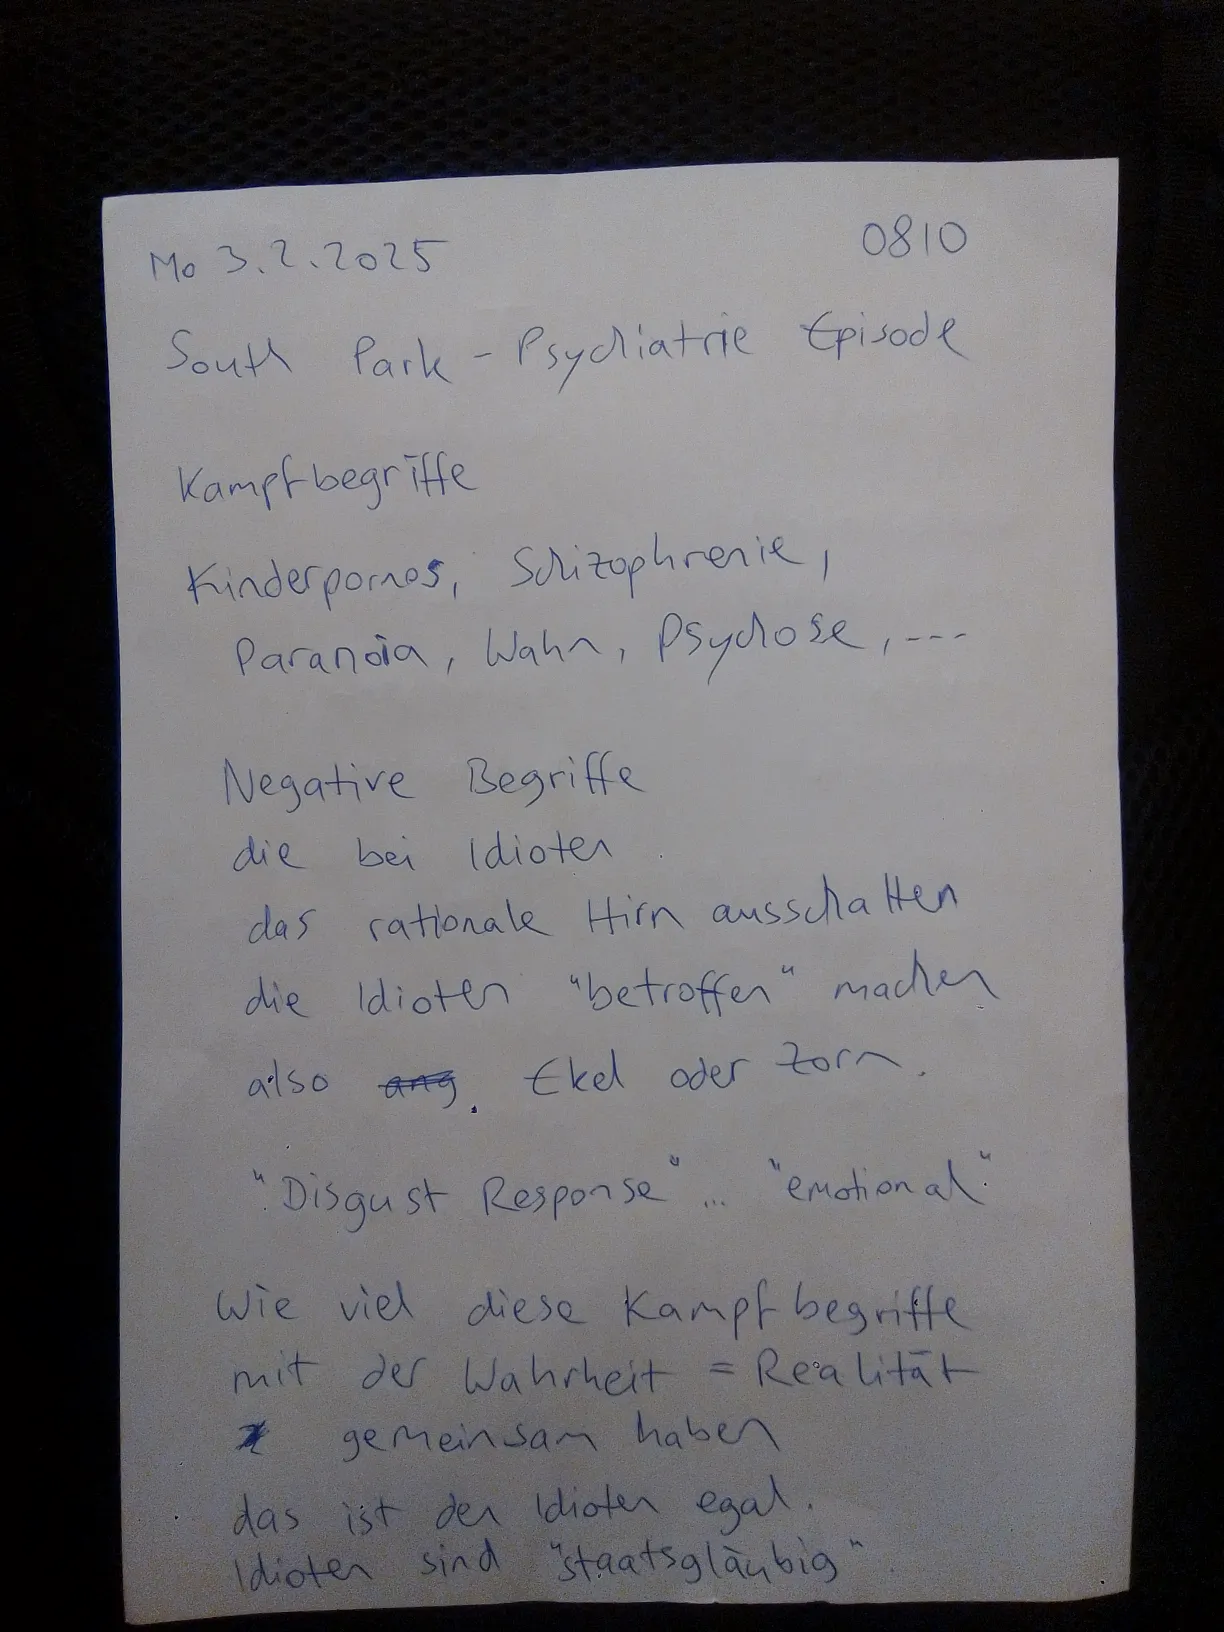 Mo 3.2.2025 0810
South Park - Psychiatrie Episode
Kampfbegriffe
Kinderpornos, Schizophrenie,
Paranoia, Wahn, Psychose, ---
Negative Begriffe
die bei Idioten
das rationale Hirn ausschalten
die Idioten "betroffen" machen
also ang. Ekel oder Zorn.
"Disgust Response" ... "emotional"
Wie viel diese Kampfbegriffe
mit der Wahrheit = Realität
gemeinsam haben
das ist den Idioten egal.
Idioten sind "staatsgläubig"